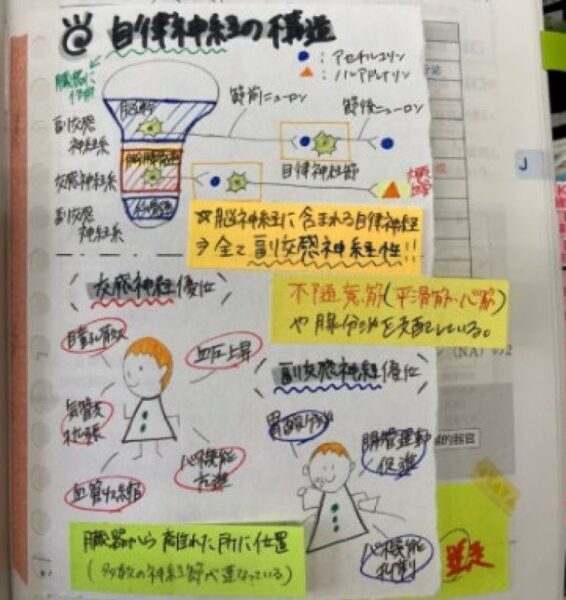 自律神経の構造
臓器に作用
●:アセチルコリン
▲:ノルアドレナリン
節前ニューロン
節後ニューロン
副交感神経系
脳幹
自律神経節
交感神経系
胸腰髄
副交感神経系
仙髄
☆脳神経に含まれる自律神経
⇒全て副交感神経性!!
交感神経優位
不随意筋(平滑筋、心筋)
や腺分泌を支配している。
瞳孔散大
血圧上昇
副交感神経優位
気管支拡張
胃酸分泌
腸管運動促進
心機能亢進
血管収縮
心機能抑制
臓器から離れた所に位置
(多数の神経節が連なっている)
J
(NA)